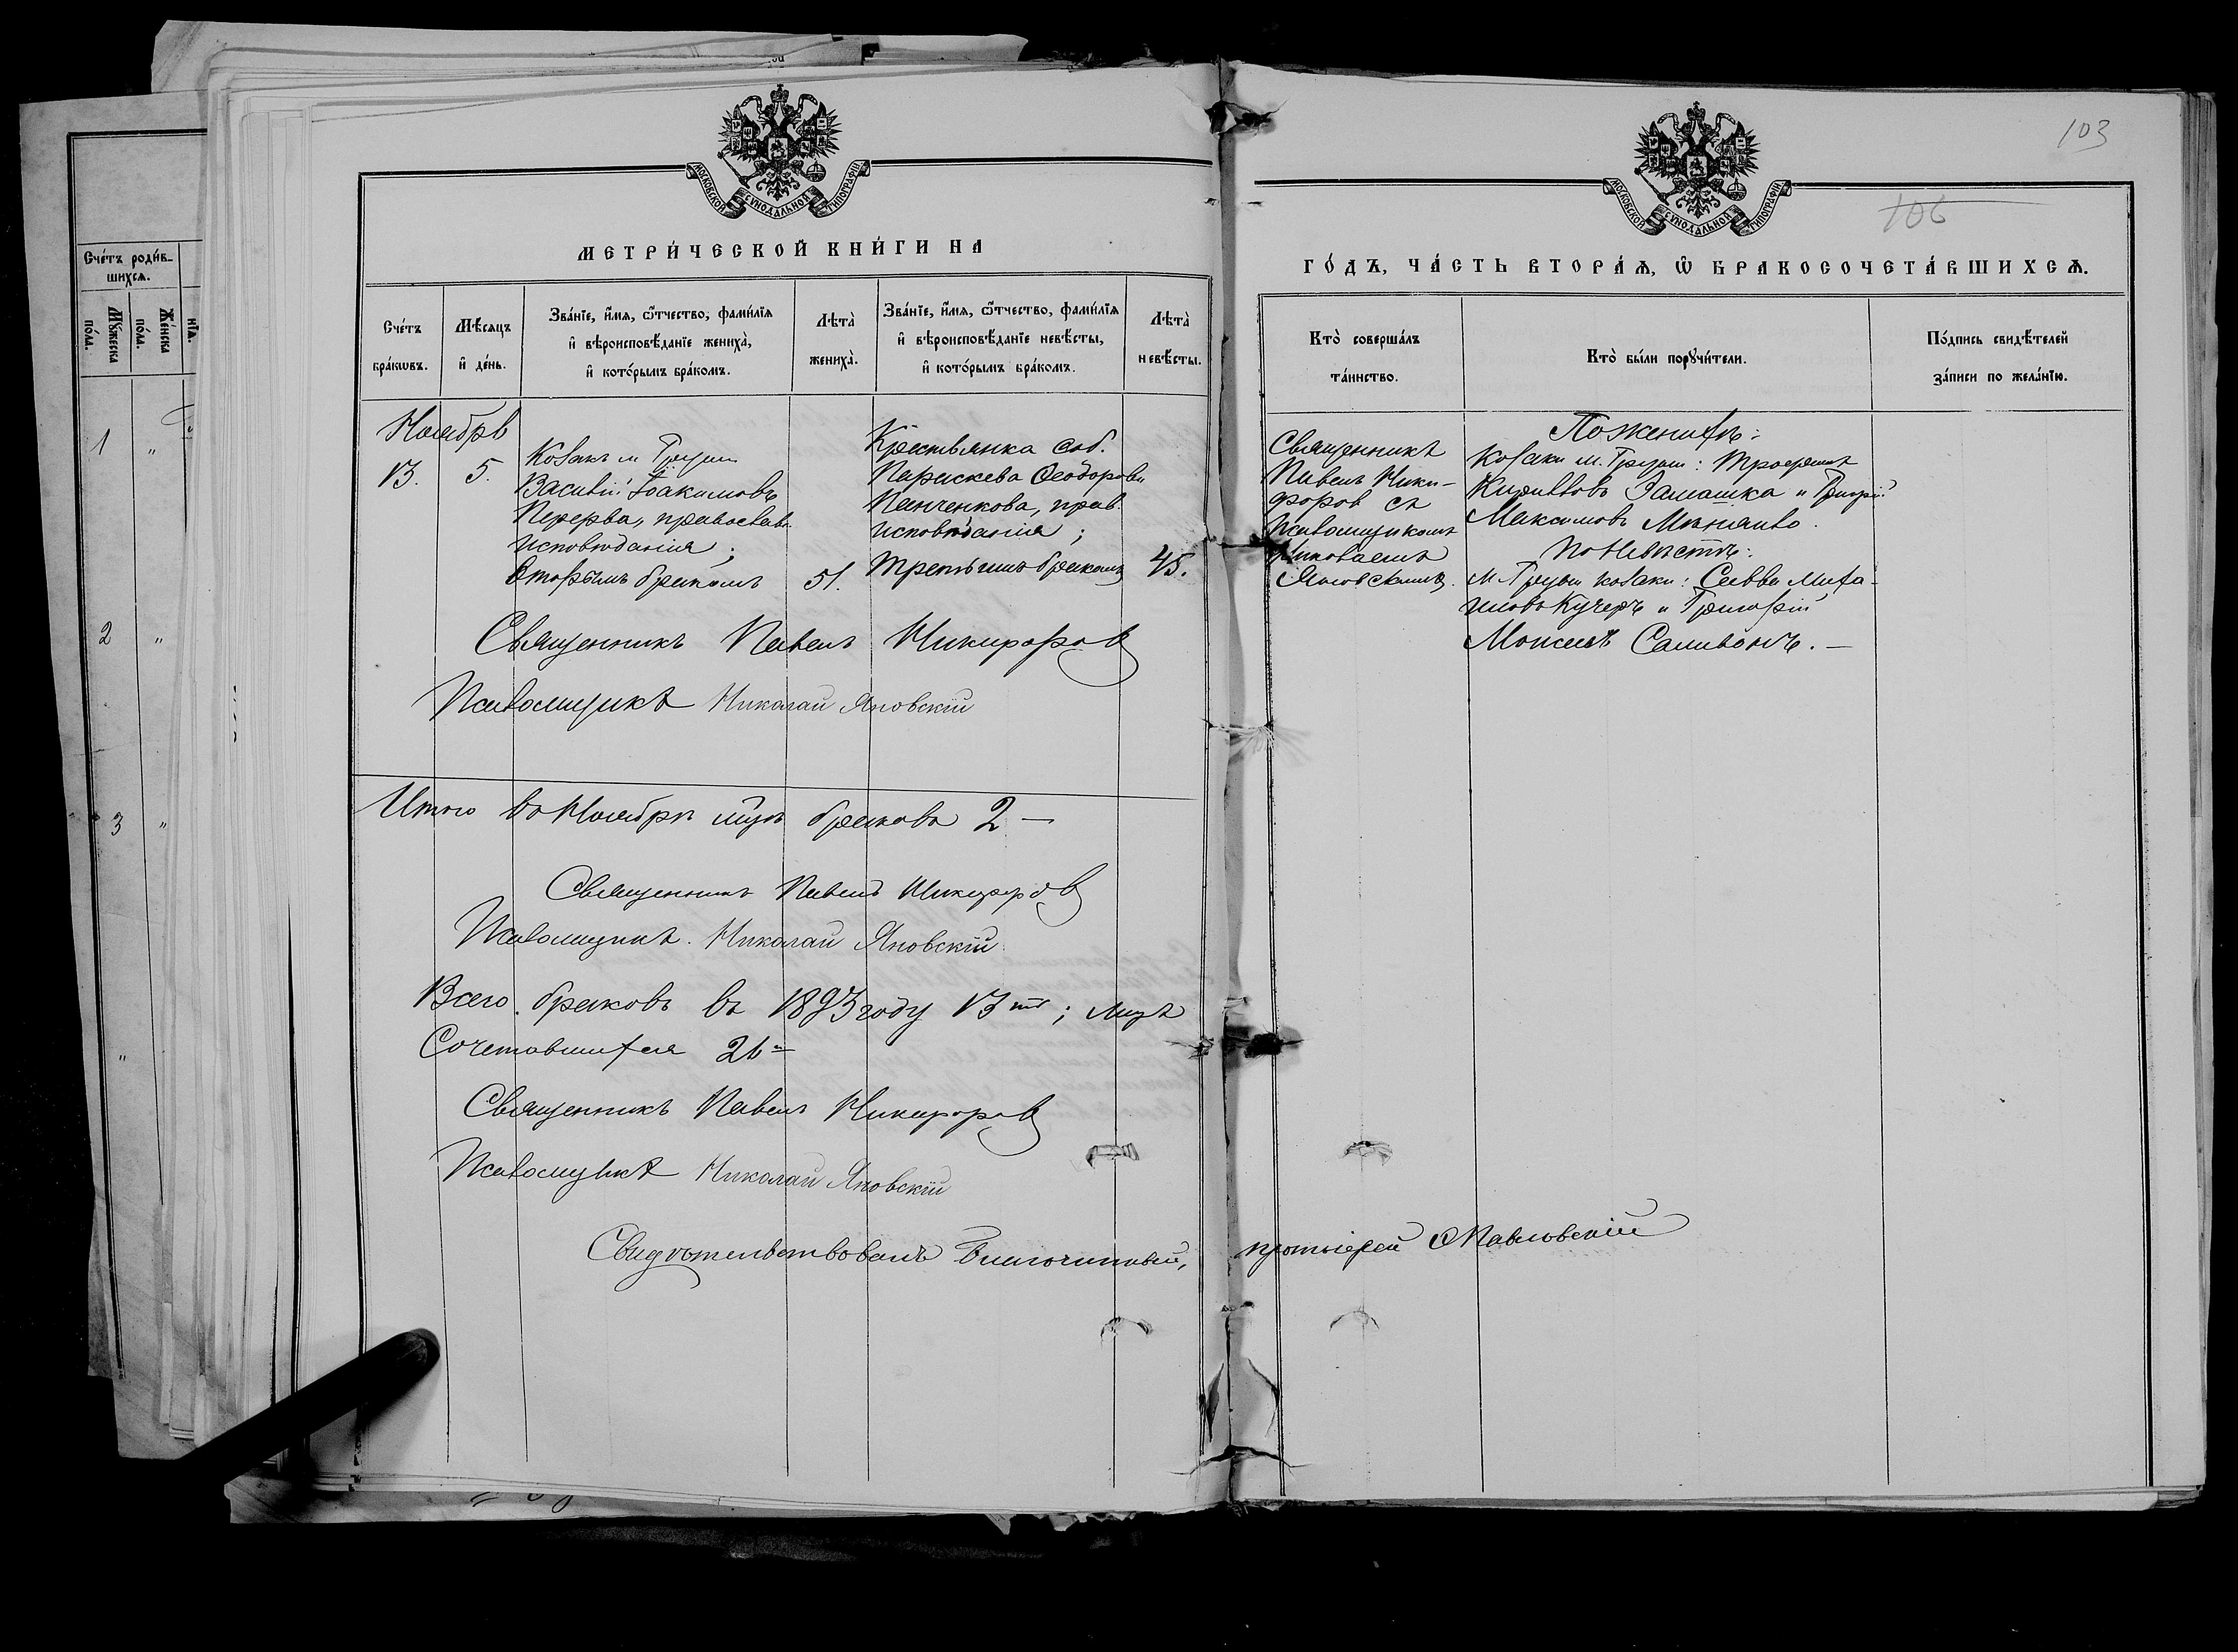 103
106
МОСКОВСКОЙ СѴНОДАЛЬНОЙ ТИПОГРАФІИ
МОСКОВСКОЙ СѴНОДАЛЬНОЙ ТИПОГРАФІИ
МЕТРИ́ЧЕСКОЙ КНИ́ГИ НА
ГО́ДЪ, ЧА́СТЬ ВТОРА́Ѧ, Ѽ БРАКОСОЧЕТА́ВШИХСѦ.
Сче́тъ роди́в-
шихсѧ.
Мꙋ́жеска по́ла.
Же́нска по́ла.
1 „
2 „
3 „
„
Сче́тъ бра́кѡвъ.
Мѣ́сѧцъ и҆ де́нь.
Зва́нїе, и҆́мѧ, ѻ҆́тчество, фами́лїѧ и҆ вѣроисповѣ́данїе жениха̀, и҆ кото́рымъ бра́комъ.
Лѣта̀ жениха̀.
Зва́нїе, и҆́мѧ, ѻ҆́тчество, фами́лїѧ и҆ вѣроисповѣ́данїе невѣ́сты, и҆ кото́рымъ бра́комъ.
Лѣта̀ невѣ́сты.
Кто̀ соверша́лъ та́инство.
Кто̀ бы́ли порꙋчи́тели.
По́дпись свидѣ́телей за́писи по жела́нїю.
Ноябрь
13.
5.
Козакъ м.
Василій Іоакимовъ
Перерва, православн.
исповѣданія;
вторымъ бракомъ
51.
Крестьянка соб.
Параскева Ѳеодорова
Панченкова, прав.
исповѣданія;
третьимъ бракомъ
45.
Священникъ
Павелъ Ники-
форов съ
псаломщикомъ
Николаемъ
Яновскимъ.
По женихѣ:
Козаки м.
Кирилловъ и Григорій
Максимовъ
По невѣстѣ:
козаки: Савва Миха-
иловъ Кучеръ и Григорій
Моисеевъ Саливонъ. —
Священникъ Павелъ Никифоров
Псаломщикъ Николай Яновскій
Итого въ Ноябрѣ мцѣ браковъ 2 —
Священникъ Павелъ Никифоров
Псаломщикъ Николай Яновскій
Всего браковъ въ 1893 году 13 ть; лицъ
Сочетавшихся 26 —
Священникъ Павелъ Никифоров
Псаломщикъ Николай Яновскій
Свидѣтельствовалъ Благочинный, протоіерей Павловскій